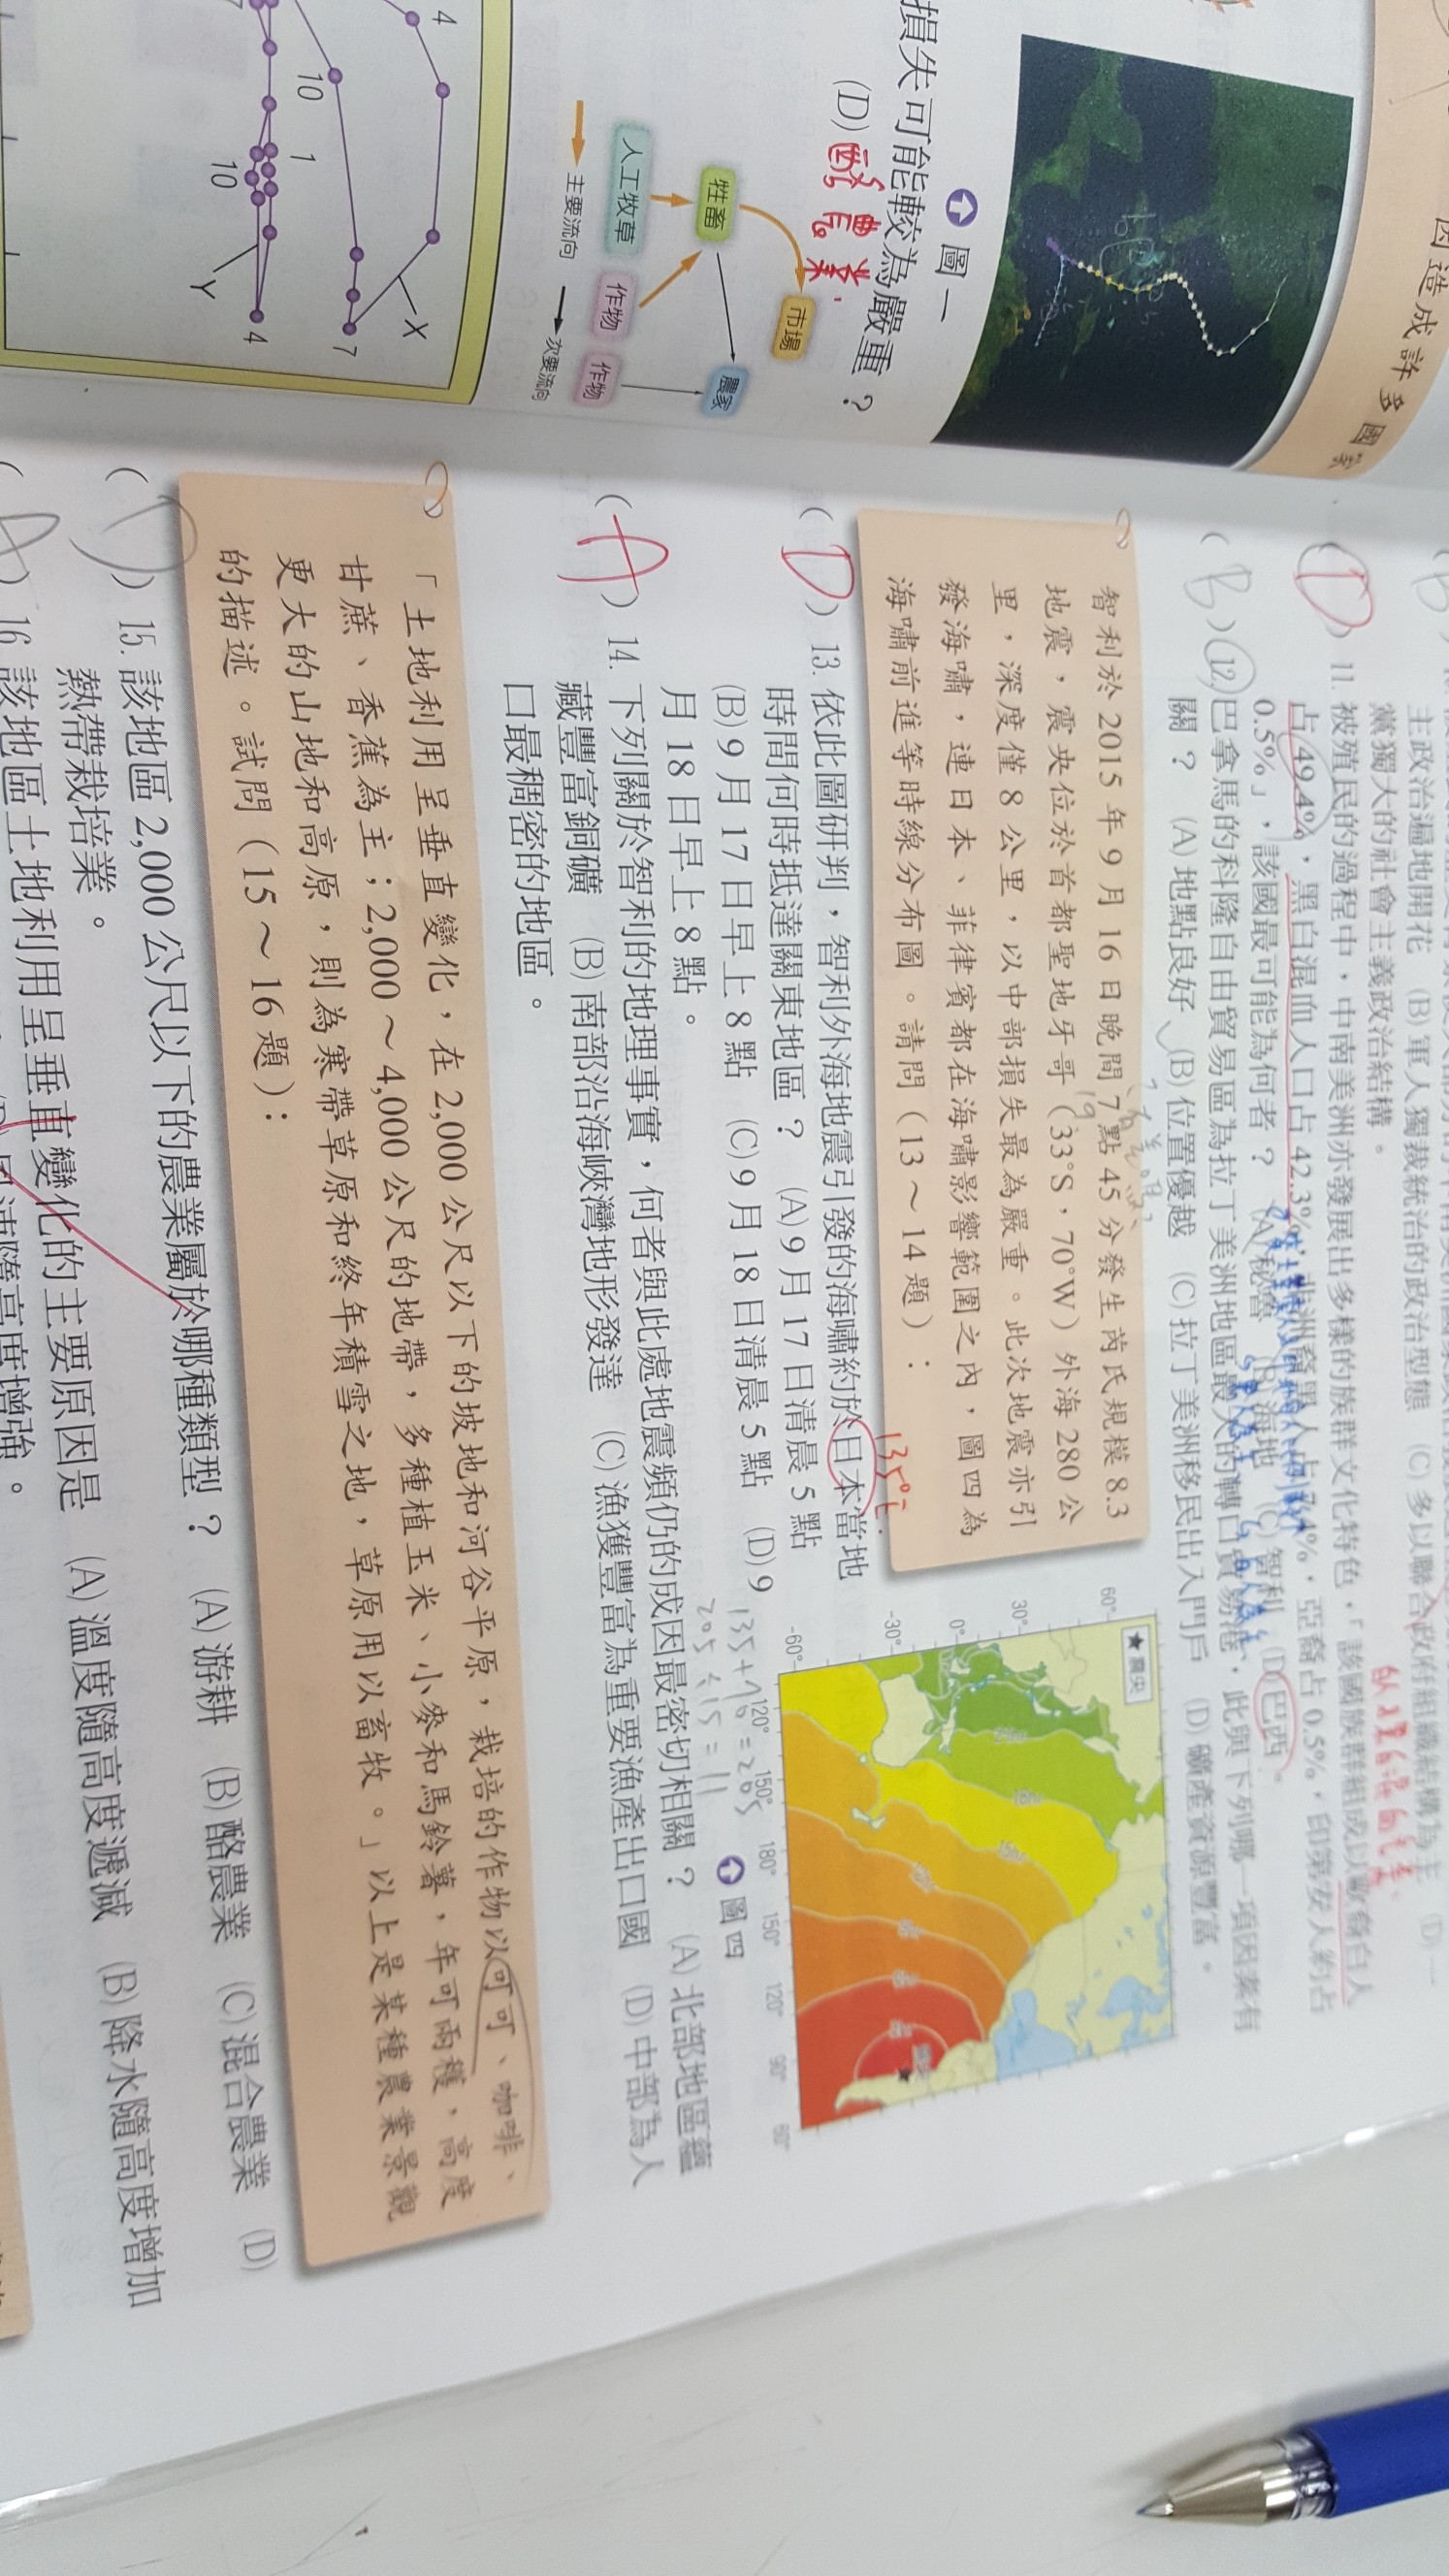 因造成許多國家
圖一
損失可能較為嚴重？
(D)酪農業.
市場
牲畜
農家
人工牧草
作物
作物
主要流向
次要流向
4
10
1
10
X
Y
7
4
主政治遍地開花
(C)多以聯合政府組織結構為主
(D)一
黨獨大的社會主義政治結構。
(B)軍人獨裁統治的政治型態
(D) 11. 被殖民的過程中，中南美洲亦發展出多樣的族群文化特色，「該國族群組成以歐裔白人
占49.4%，黑白混血人口占42.3%，非洲裔黑人占7.4%，亞裔占0.5%，印第安人約占
0.5%」，該國最可能為何者？ (A)秘魯 (B)海地 (C)智利 (D)巴西。
(B) 12. 巴拿馬的科隆自由貿易區為拉丁美洲地區最大的轉口貿易港，此與下列哪一項因素有
關？ (A)地點良好 (B)位置優越 (C)拉丁美洲移民出入門戶 (D)礦產資源豐富。
智利於2015年9月16日晚間7點45分發生芮氏規模8.3
地震，震央位於首都聖地牙哥（33°S，70°W）外海280公
里，深度僅8公里，以中部損失最為嚴重。此次地震亦引
發海嘯，連日本、菲律賓都在海嘯影響範圍之內，圖四為
海嘯前進等時線分布圖。請問（13～14題）：
135°E.
19
★震央
60°
30°
0°
-30°
-60°
120° 150° 180° 150° 120° 90° 60°
圖四
(D) 13. 依此圖研判，智利外海地震引發的海嘯約於日本當地
時間何時抵達關東地區？ (A)9月17日清晨5點
(B)9月17日早上8點 (C)9月18日清晨5點 (D)9
月18日早上8點。
135+70=205
205÷15=11
(A) 14. 下列關於智利的地理事實，何者與此處地震頻仍的成因最密切相關？ (A)北部地區蘊
藏豐富銅礦 (B)南部沿海峽灣地形發達 (C)漁獲豐富為重要漁產出口國 (D)中部為人
口最稠密的地區。
「土地利用呈垂直變化，在2,000公尺以下的坡地和河谷平原，栽培的作物以可可、咖啡、
甘蔗、香蕉為主；2,000～4,000公尺的地帶，多種植玉米、小麥和馬鈴薯，年可兩穫，高度
更大的山地和高原，則為寒帶草原和終年積雪之地，草原用以畜牧。」以上是某種農業景觀
的描述。試問（15～16題）：
(D) 15. 該地區2,000公尺以下的農業屬於哪種類型？ (A)游耕 (B)酪農業 (C)混合農業 (D)
熱帶栽培業。
(A) 16. 該地區土地利用呈垂直變化的主要原因是 (A)溫度隨高度遞減 (B)降水隨高度增加
(D)風速隨高度增強。